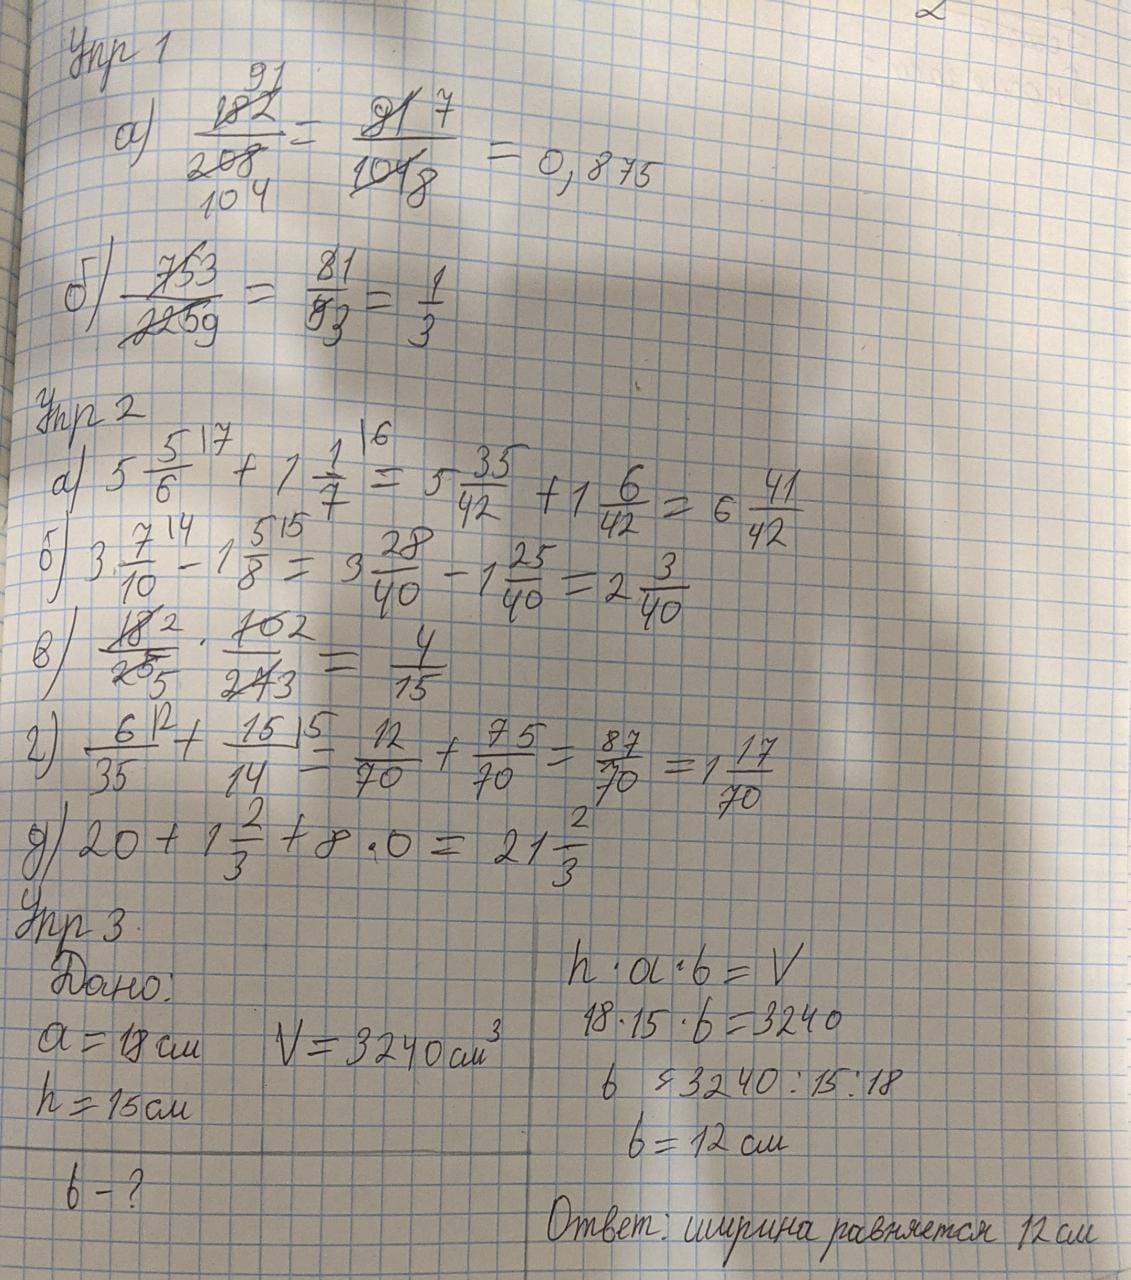 2
Упр 1
а) 182/208 (91/104) = 91/104 (7/8) = 0,875
б) 753/2259 = 81/93 = 1/3
Упр 2
а) 5 5/6 |7 + 1 1/7 |6 = 5 35/42 + 1 6/42 = 6 41/42
б) 3 7/10 |4 - 1 5/8 |5 = 3 28/40 - 1 25/40 = 2 3/40
в) 18 2/25 5 · 10 2/27 3 = 4/15
г) 6/35 |2 + 15/14 |5 = 12/70 + 75/70 = 87/70 = 1 17/70
д) 20 + 1 2/3 + 8 · 0 = 21 2/3
Упр 3.
Дано:
a = 18 см V = 3240 см³
h = 15 см
b - ?
h · a · b = V
18 · 15 · b = 3240
b = 3240 : 15 : 18
b = 12 см
Ответ: ширина равняется 12 см